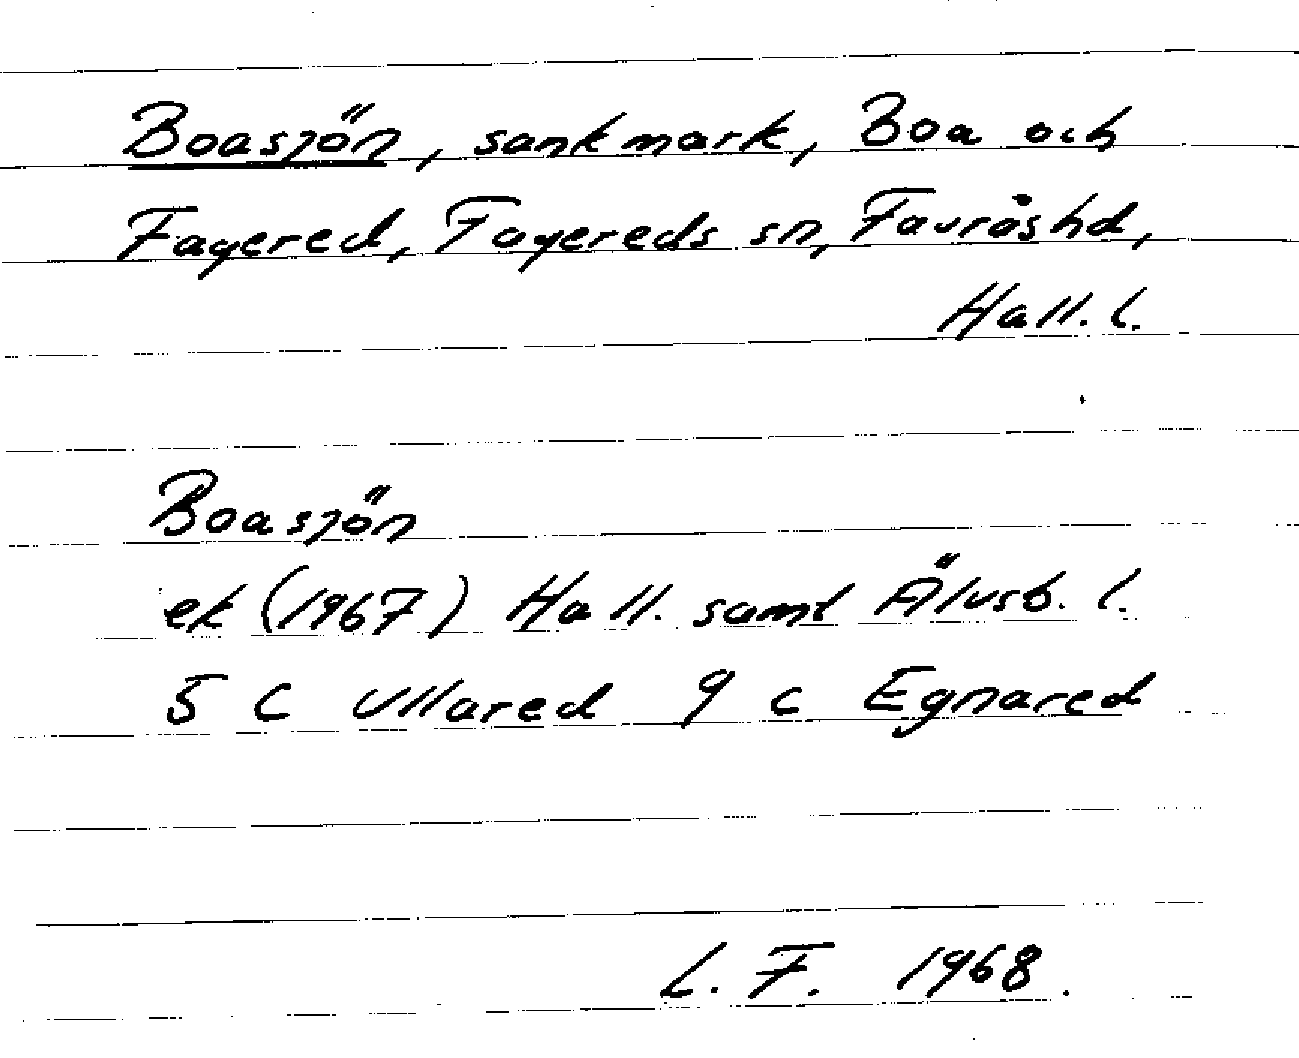 Boasjön, sankmark, Boa och
Fagered, Fagereds sn, Fauråshd,
Hall. l.
Boasjön
ek (1967) Hall. samt Älvsb. l.
5 C Ullared 9 c Egnared
L. F. 1968.